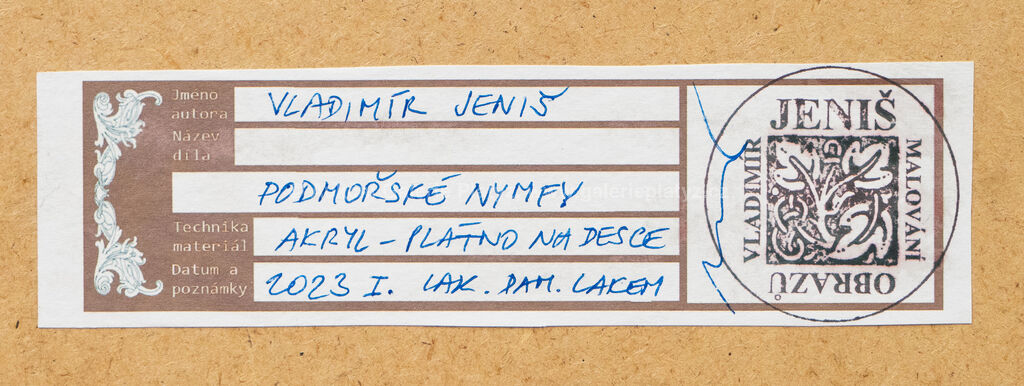 Jméno
autora
VLADIMÍR JENIŠ
Název
díla
PODMOŘSKÉ NYMFY
Technika
materiál
AKRYL - PLÁTNO NA DESCE
Datum a
poznámky
2023 I. LAK. DAM. LAKEM
JENIŠ
VLADIMÍR
MALOVÁNÍ
OBRAZŮ
galerieplatyz.cz